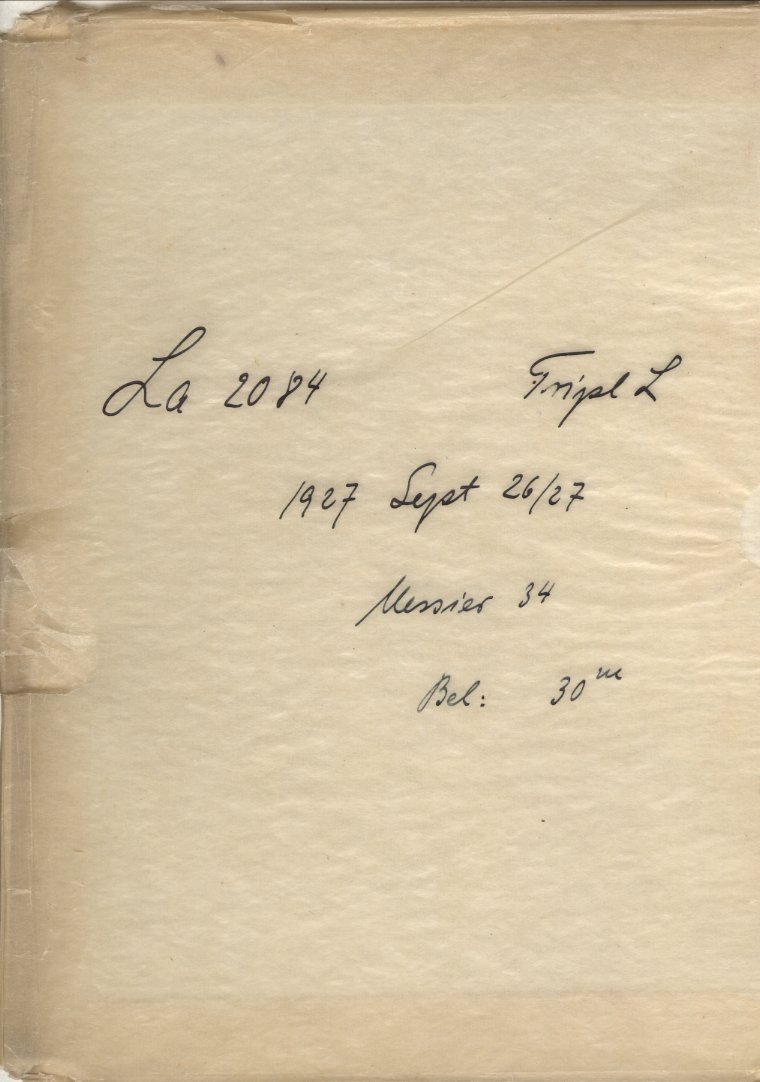 La 2084 Tripl L
1927 Sept 26/27
Messier 34
Bel: 30m